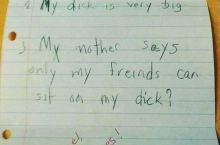 2 My dick is very big
3 My mother says
only my freinds can
sit on my dick?